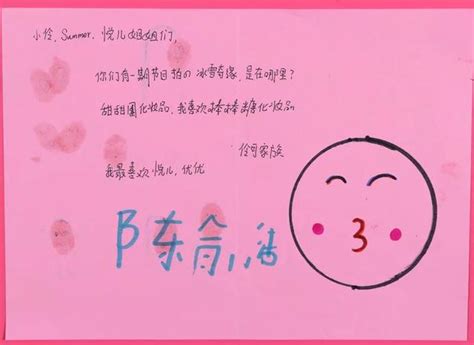 小伶、Summer、悦儿姐姐们，
你们有一期节目拍的冰雪奇缘，是在哪里？
甜甜圈化妆品，我喜欢棒棒糖化妆品
伶可家族
我最喜欢悦儿，优优
陈